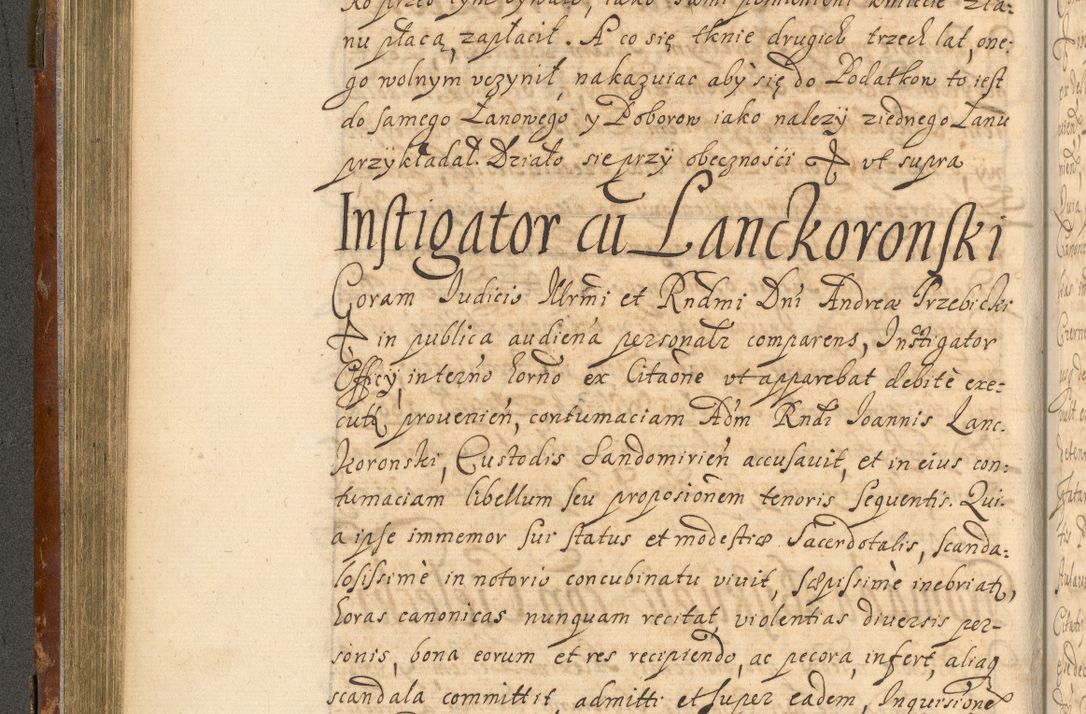 ko przed tym bywało, iako sami pomienieni kmiecie zła-
nu płacą, zapłacił. A co się tknie drugich trzech lat, one-
go wolnym vczynił, nakazuiac aby się do Podatkow to iest
do samego Łanowego y Poborow iako nalezÿ ziednego Łanu
przykładał. Działo się przÿ obecznośći ut supra
Instigator cũ Lanckoronski
Coram Iudicio Illrmi et Rndmi Dni Andreæ Trzebicki
in publica audiena personalr comparens, Instigator
Officÿ, interño horño ex Citaõne vt apparebat debitè exe-
cutæ, prouenien, contumaciam Adm Rndi Ioannis Lanc-
koronski, Custodis Sandomirien accusauit, et in eius con-
tumaciam libellum seu proposionem tenoris sequentis. Qui-
a ipse immemor sui status et modestiæ Sacerdotalis, scanda-
losissimè in notorio concubinatu viuit, sæpissimè inebriat,
horas canonicas nunquam recitat, violentias diuersis per-
sonis, bona eorum et res recipiendo, ac pecora, infert, aliaq
scandala committit, admitti et super eadem, Inquisitionẽ